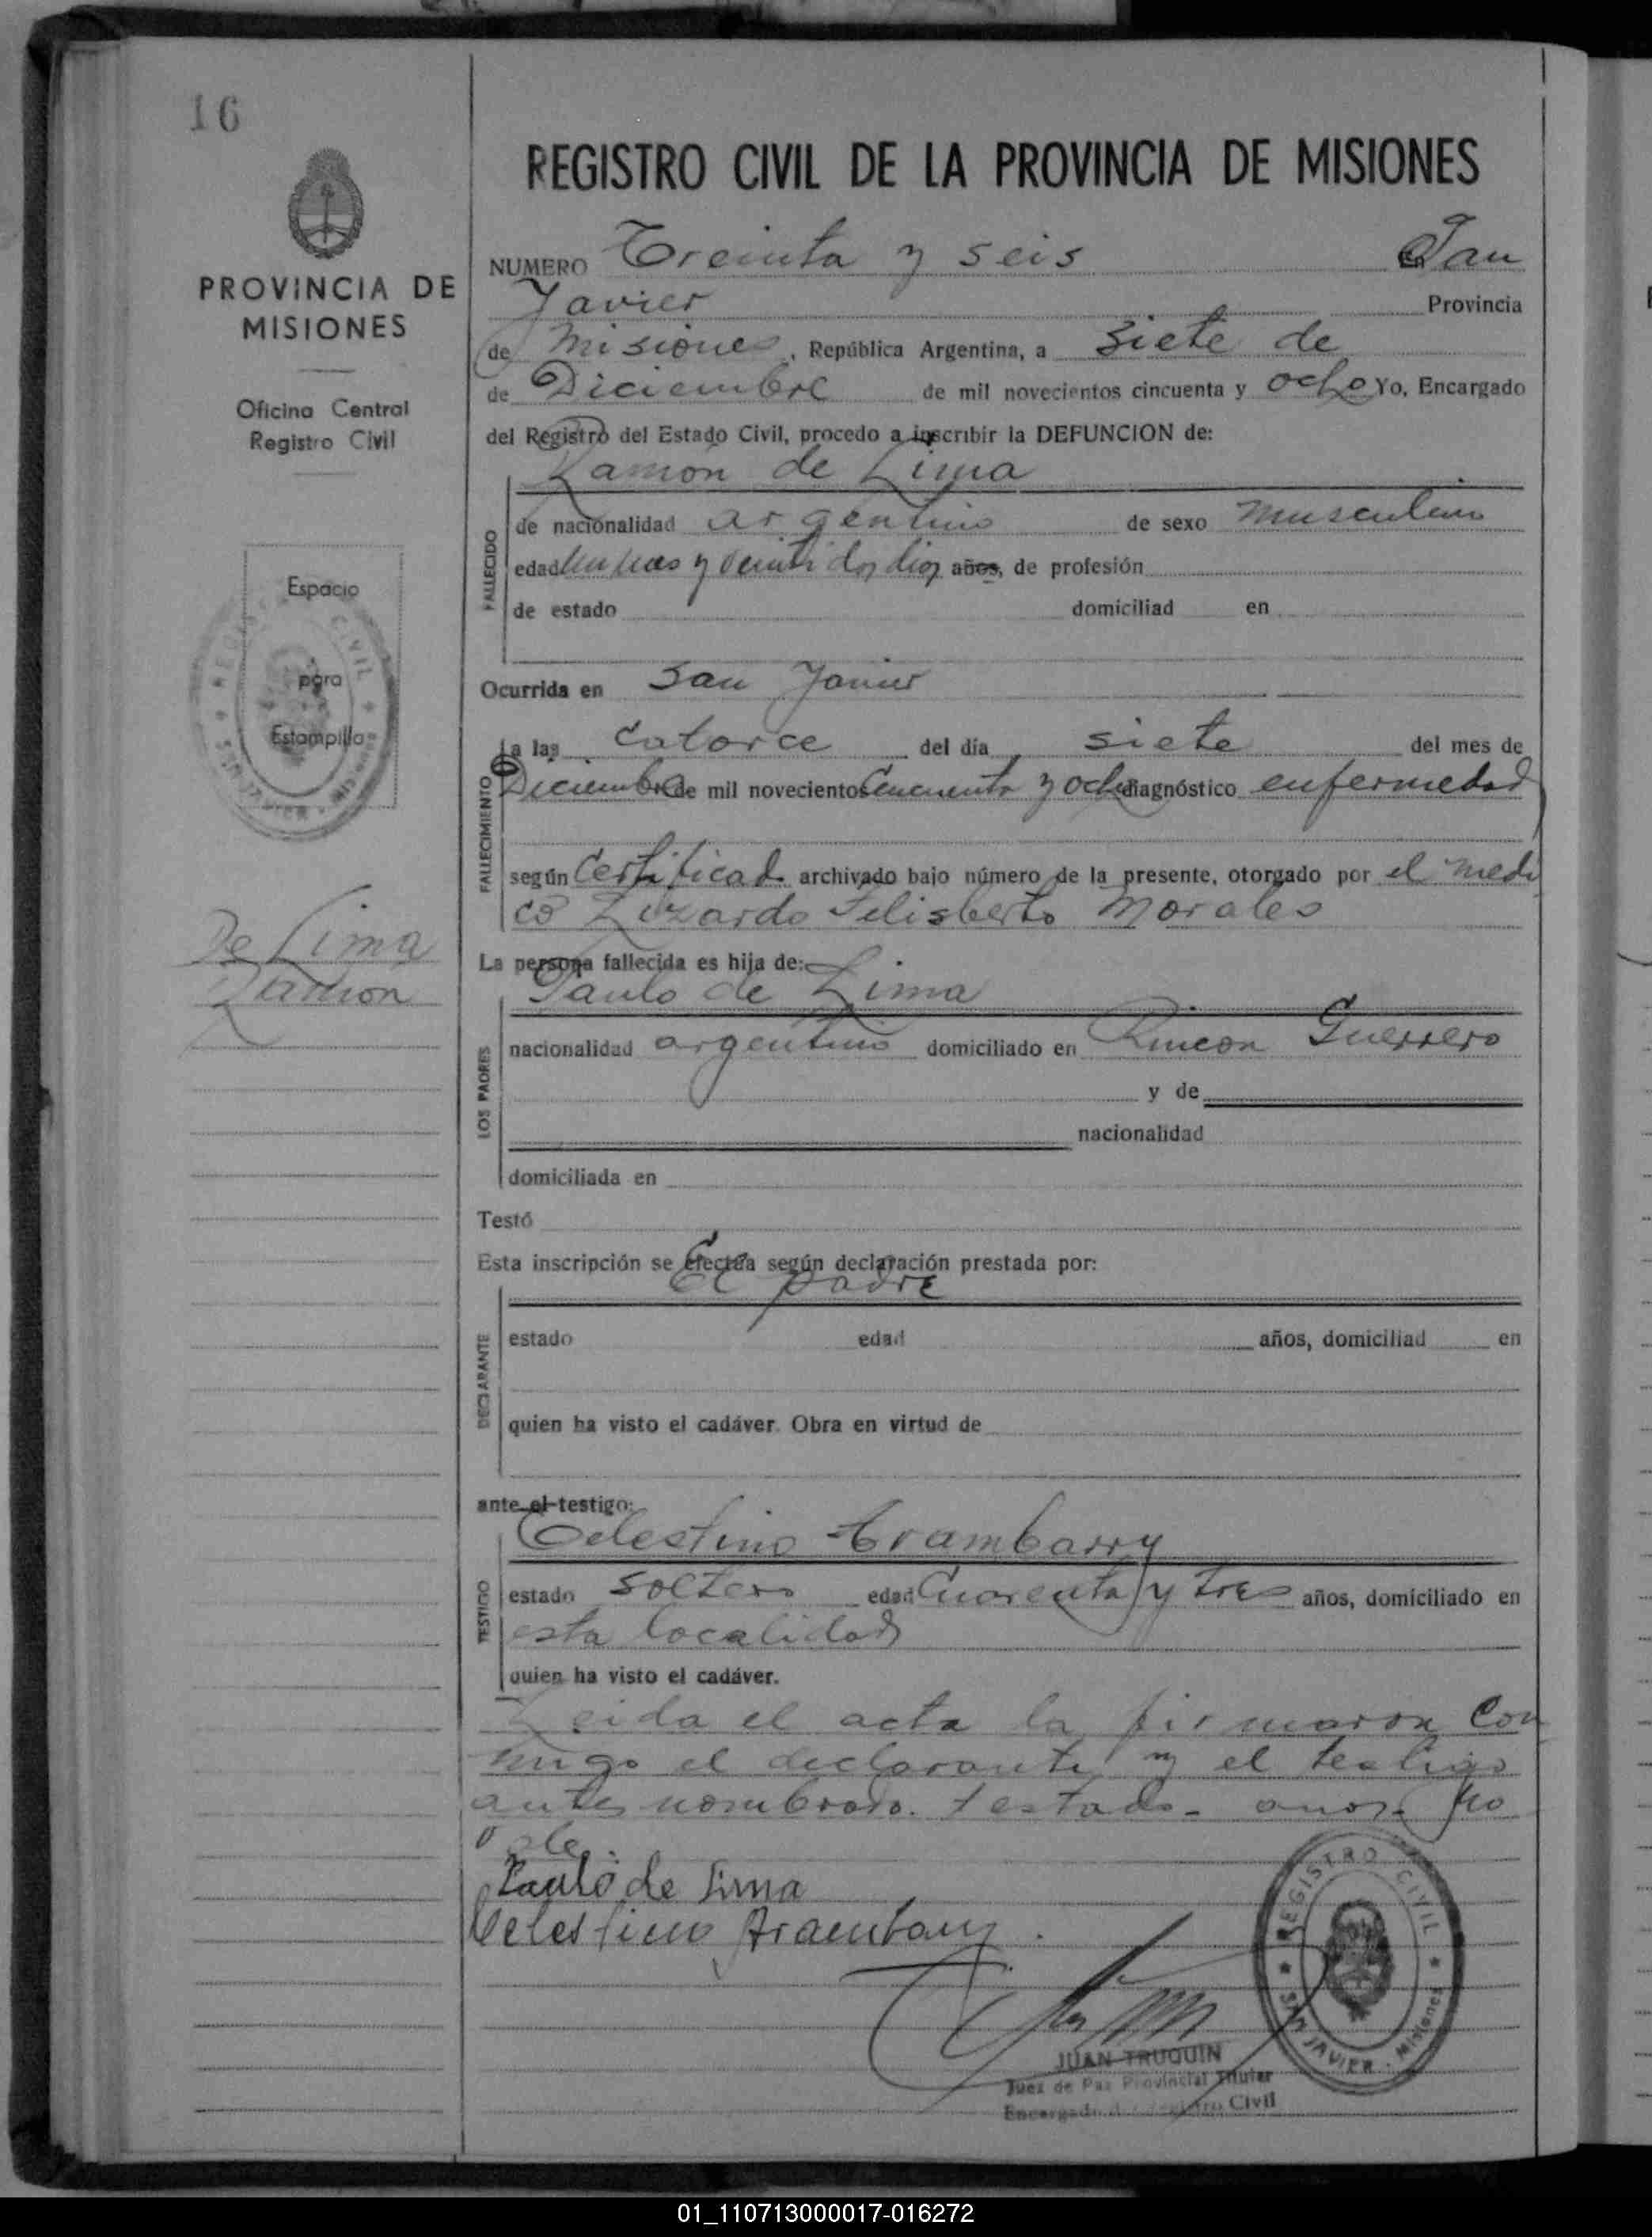 16
REGISTRO CIVIL DE LA PROVINCIA DE MISIONES
PROVINCIA DE
MISIONES
Oficina Central
Registro Civil
Espacio
para
Estampilla
REGISTRO CIVIL
SAN JAVIER - Misiones
De Lima
Ramon
NUMERO Treinta y seis San
Javier Provincia
de Misiones, República Argentina, a Siete de
de Diciembre de mil novecientos cincuenta y ocho Yo, Encargado
del Registro del Estado Civil, procedo a inscribir la DEFUNCION de:
Ramón de Lima
FALLECIDO
de nacionalidad argentino de sexo musculino
edad un mes y veinti dos dias años, de profesión
de estado domiciliad en
Ocurrida en San Javier
FALLECIMIENTO
a las catorce del día siete del mes de
Diciembre de mil novecientos Cincuenta y ocho diagnóstico enfermedad
según Certificado archivado bajo número de la presente, otorgado por el medi
co Lizardo Felisberto Morales
La persona fallecida es hija de:
Paulo de Lima
LOS PADRES
nacionalidad argentino domiciliado en Rincon Guerrero
y de
nacionalidad
domiciliada en
Testó
Esta inscripción se efectúa según declaración prestada por:
El padre
DECLARANTE
estado edad años, domiciliad en
quien ha visto el cadáver. Obra en virtud de
ante el testigo:
Celestino Arambarry
TESTIGO
estado soltero edad Cuarenta y tres años, domiciliado en
esta localidad
quien ha visto el cadáver.
Leida el acta la firmaron Con
migo el declarante y el testigo
antes nombrado. Testado - años - No
vale.
Paulo de Lima
Celestino Arambarry
REGISTRO CIVIL
SAN JAVIER - Misiones
JUAN TRUQUIN
Juez de Paz Provincial Titular
Encargado del Registro Civil
01_110713000017-016272